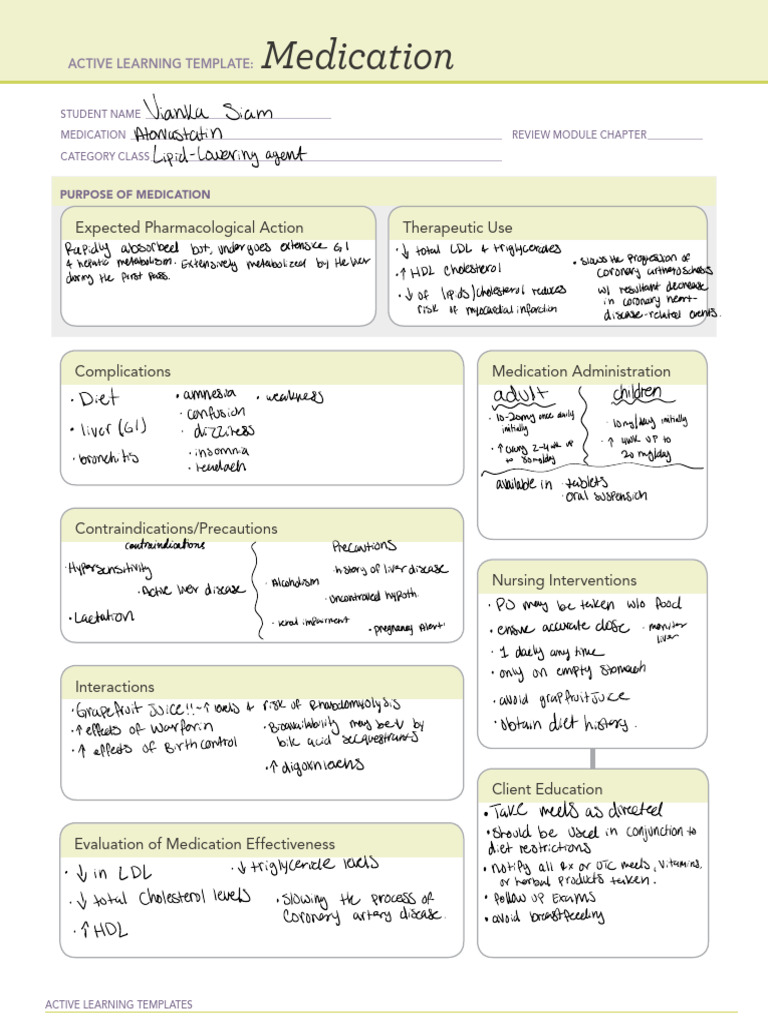 ACTIVE LEARNING TEMPLATE: Medication
STUDENT NAME Vianka Siam
MEDICATION Atorvastatin
REVIEW MODULE CHAPTER
CATEGORY CLASS Lipid-Lowering agent
PURPOSE OF MEDICATION
Expected Pharmacological Action
Rapidly absorbed but, undergoes extensive GI
& hepatic metabolism. Extensively metabolized by the liver
during the first pass.
Therapeutic Use
· ↓ total LDL & triglycerides
· ↑ HDL cholesterol
· ↓ of lipids/cholesterol reduces
risk of myocardial infarction
· slows the progression of
coronary
w/ resultant decrease
in coronary heart-
disease-related events.
Complications
· Diet
· liver (GI)
· bronchitis
· amnesia
· confusion
· dizziness
· insomnia
·
· weakness
Medication Administration
adult
· 10-20mg once daily
initially
· ↑ every 2-4 wk up
to 80mg/day
children
· 10mg/day initially
· ↑ 4wk up to
20 mg/day
available in · tablets
· oral suspension
Contraindications/Precautions
contraindications
· Hypersensitivity
· Active liver disease
· Lactation
Precautions
· history of liver disease
· Alcoholism
· uncontrolled hypoth.
· renal impairment
· pregnancy Alert!
Nursing Interventions
· PO may be taken w/o food
· ensure accurate dose
· monitor
liver
· 1 daily any time
· only on empty stomach
· avoid grapfruit juice
· obtain diet history.
Interactions
· Grapefruit Juice!! - ↑ levels & risk of Rhabdomyolysis
· ↑ effects of Warfarin
· ↑ effects of Birthcontrol
· Bioavailability may be ↓ by
bile acid
· ↑ digoxin levels
Client Education
· Take meds as directed
· should be used in conjunction to
diet restrictions
· notify all Rx or OTC meds, vitamins,
or herbal products taken.
· follow up Exams
· avoid breastfeeding
Evaluation of Medication Effectiveness
· ↓ in LDL
· ↓ total Cholesterol levels
· ↑ HDL
· ↓ triglyceride levels
· slowing the process of
Coronary artery disease.
ACTIVE LEARNING TEMPLATES